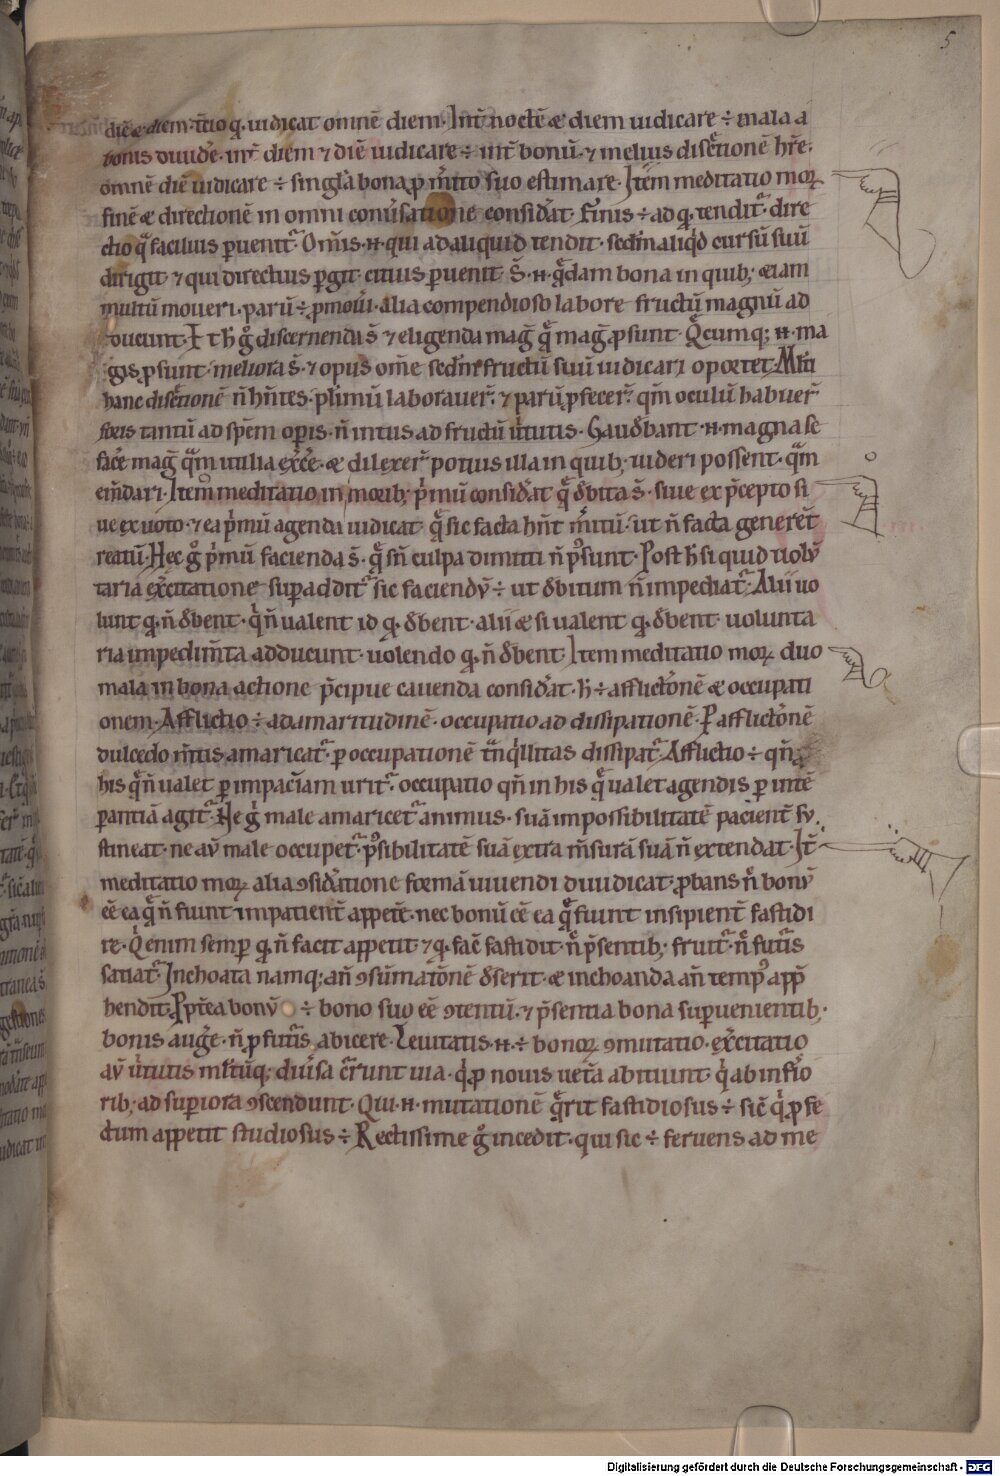 5
diē & diem· t̄cio q̨ iudicat omnē diem· Int̄ noctē & diem iudicare ÷ mala a
bonis diuidr̄e· int̄ diem ⁊ diē iudicare ÷ int̄ bonū· ⁊ melius discᷓetionē hr̄e·
omnē diē iudicare ÷ singl̄a bona ꝓ mͥto suo estimare· Item meditatio moꝝ
finē & directionē in omni conuͥsatione considāt· Finis ÷ ad q̨ tenditᷣ· dire
ctio qᷓ facilius ꝑuenitᷣ· Om̄is ·N· qui ad aliquid tendit· scd̄m aliqͦd cursū suū
dirigit ⁊ qui directius ꝑgit· citius ꝑuenit S̄ ·N· qᷓdam bona in quib; etiam
multū moueri· parū ÷ ꝓmoūi· alia compendioso labore fructū magnū ad
ducunt· I t h̄ gͦ discernenda s̄ ⁊ eligenda maḡ qᷓ maḡ ꝓsunt· Qᷓcumq; ·N· ma
gis ꝓsunt· meliora s̄· ⁊ opus om̄e scd̄m fructū suū iudicari oportet· Ml̄ti
hanc discᷓetionē n̄ hn̄tes· pl̄imū laborauer̄· ⁊ parū ꝓfecer̄ qm̄ oculū habuer̄
foris tantū ad sp̄em oꝑis· n̄ intus ad fructū uͥtutis· Gaudb̄ant ·N· magna se
facͤe maḡ qᷓm utilia exͤcͤe· & dilexer̄ potius illa in quib; uideri possent· qᷓm
em̄dari· Item meditatio in morib; pͥmū considāt qᷓ db̄ita s̄· siue ex p̄cepto si
ue ex uoto· ⁊ ea pͥmū agenda iudicat qᷓ sic facta hn̄t mͥitū· ut n̄ facta generēt
reatū· Hec gͦ pͥmū facienda s̄· qᷓ sn̄ culpa dimitti n̄ pͦsunt· Post h̄ si quid uolū
taria exͤcitatione suꝑadditᷣ sic faciendū ÷ ut db̄itum n̄ impediatᷣ· Alii uo
lunt q̨ n̄ db̄ent· qͥ n̄ ualent id q̨ db̄ent· alii & si ualent q̨ db̄ent· uolunta
ria impedim̄ta adducunt· uolendo q̨ n̄ db̄ent Item meditatio moꝝ duo
mala in bona actione p̄cipue cauenda considāt· h̄ ÷ afflictōnē & occupati
onem· Afflictio ÷ ad amaritudinē· occupatio ad dissipationē· Ꝑ afflictōnē
dulcedo m̄tis amaricatᷣ· ꝑ occupationē tn̄qͥllitas dissipatᷣ· Afflictio ÷ qn̄ ꝓ
his qᷓ n̄ ualet ꝑ impac̄iam uritᷣ· occupatio qn̄ in his qᷓ ualet agendis ꝑ intē
ꝑantiā agitᷣ· Ne gͦ male amaricetᷣ animus· suā impossibilitatē pacient̄ su,
stineat· ne aū male occupetᷣ· pͦsibilitatē suā extra m̄surā suā n̄ extendat· It̄
meditatio moꝝ alia ꝯsidāatione formā uiuendi diiudicat· ꝓbans n̄ bonū
eē ea qᷓ n̄ fiunt impatient̄ appetēe· nec bonū eē ea qᷓ fiunt insipient̄ fastidi
re· Qͥ enim semꝑ q̨ n̄ facit appetit ⁊ q̨ facͭ fastidit· n̄ p̄sentib; fruitᷣ· n̄ futᷓis
satiatᷣ· Inchoata namq; an̄ ꝯsūmatōnē ds̄erit· & inchoanda an̄ tempꝰ app̄
hendit· Ppt̄ea bonū ÷ bono suo eē ꝯtentū· ⁊ p̄sentia bona suꝑuenientib;
bonis augͤe· n̄ ꝓ futᷓis abicere· Leuitatis ·N· ÷ bonoꝝ ꝯmutatio· exͤcitatio
aū uͥtutis· Ml̄tūq; diuͥsa cᷓrunt uia· qͥ ꝓ nouis uet̄a abitiunt· qͥ ab infͤio
rib; ad suꝑiora ꝯscendunt· Qui ·N· mutationē qᷓrit fastidiosus ÷ sic̄ qͥ ꝓfe
ctum appetit studiosus ÷ Rectissime gͦ incedit· qui sic ÷ feruens ad me
Digitalisierung gefördert durch die Deutsche Forschungsgemeinschaft - DFG